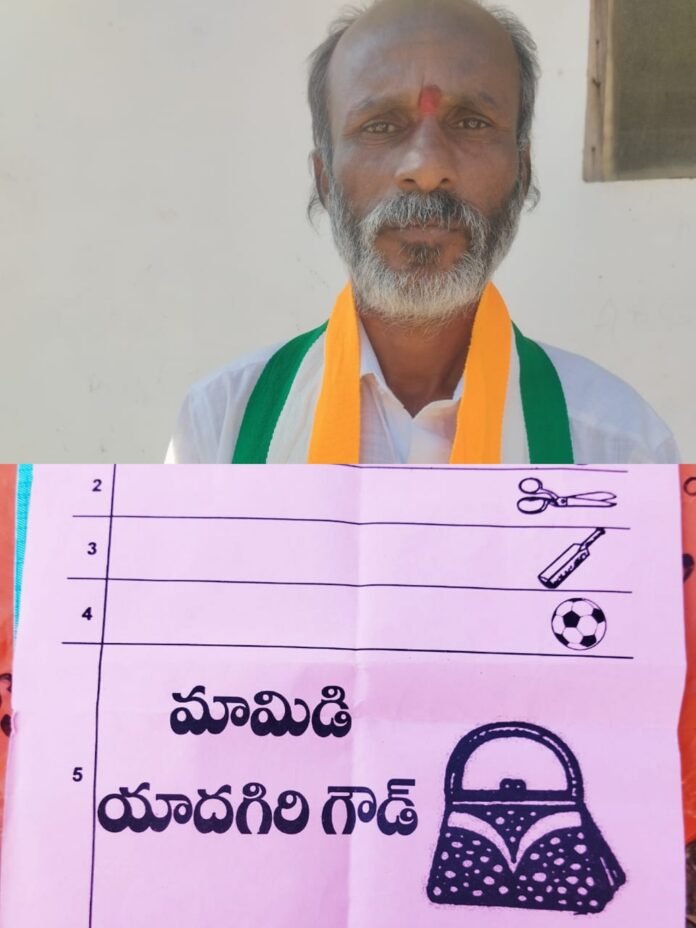 2
3
4
5
మామిడి
యాదగిరి గౌడ్